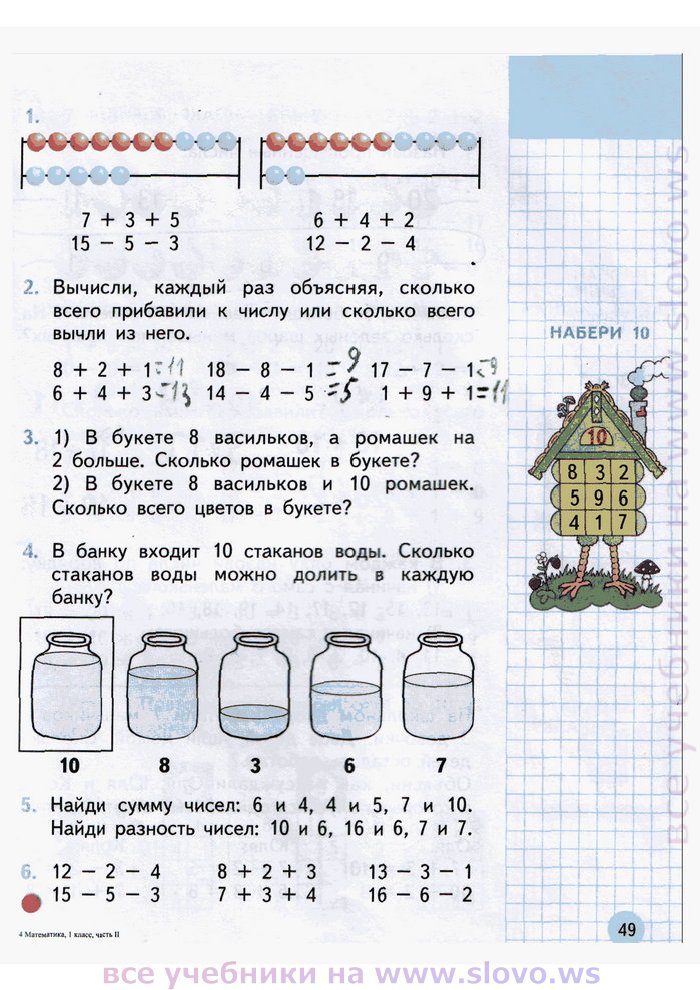 1.
7 + 3 + 5 6 + 4 + 2
15 − 5 − 3 12 − 2 − 4
2. Вычисли, каждый раз объясняя, сколько
всего прибавили к числу или сколько всего
вычли из него.
8 + 2 + 1=11 18 − 8 − 1=9 17 − 7 − 1=9
6 + 4 + 3=13 14 − 4 − 5=5 1 + 9 + 1=11
3. 1) В букете 8 васильков, а ромашек на
2 больше. Сколько ромашек в букете?
2) В букете 8 васильков и 10 ромашек.
Сколько всего цветов в букете?
4. В банку входит 10 стаканов воды. Сколько
стаканов воды можно долить в каждую
банку?
10 8 3 6 7
5. Найди сумму чисел: 6 и 4, 4 и 5, 7 и 10.
Найди разность чисел: 10 и 6, 16 и 6, 7 и 7.
6. 12 − 2 − 4 8 + 2 + 3 13 − 3 − 1
15 − 5 − 3 7 + 3 + 4 16 − 6 − 2
4 Математика, 1 класс, часть II
НАБЕРИ 10
10
8 3 2
5 9 6
4 1 7
49
все учебники на www.slovo.ws
все учебники на www.slovo.ws